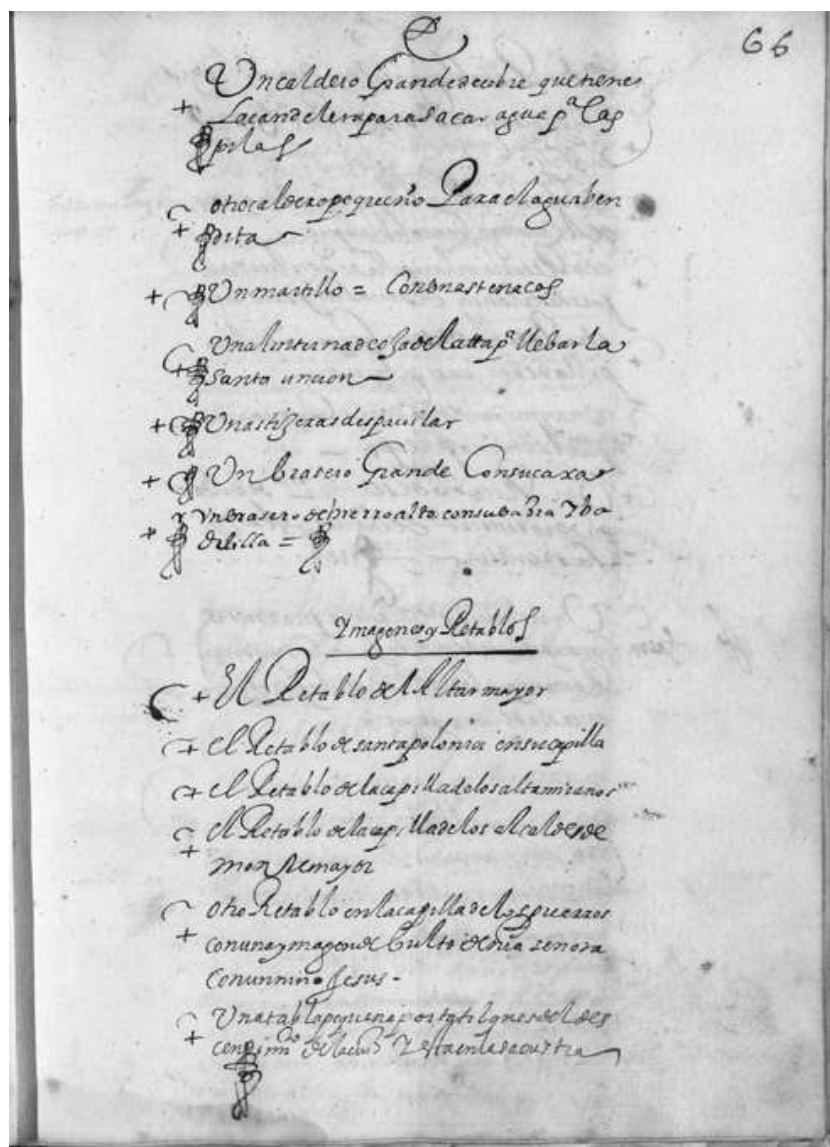 66
Un caldero Grande de cobre que tiene
La candelera para sacar agua pª Las
pilas
otro caldero pequeño Para el agua ben
dita
Un martillo = Con unas tenacas
Una linterna de oja de latta pª llebar La
Santa uncion
Unas tixeras despauilar
Un brasero Grande Con su caxa
Yn brasero de hierro alto con su baçia Y ba
dililla =
Ymagenes y Retablos
El Retablo del Altar mayor
el Retablo de santa polonia en su capilla
el Retablo de la capilla de los altamiranos
el Retablo de la capilla de los alcaldes de
montemayor
otro Retablo en la capilla de los puerros
con una ymagen de bulto de nrª senora
Con un niño Jesus -
Una tabla pequeña portatil que es del des
cen­dimº de la cruz Y esta en la sacristia